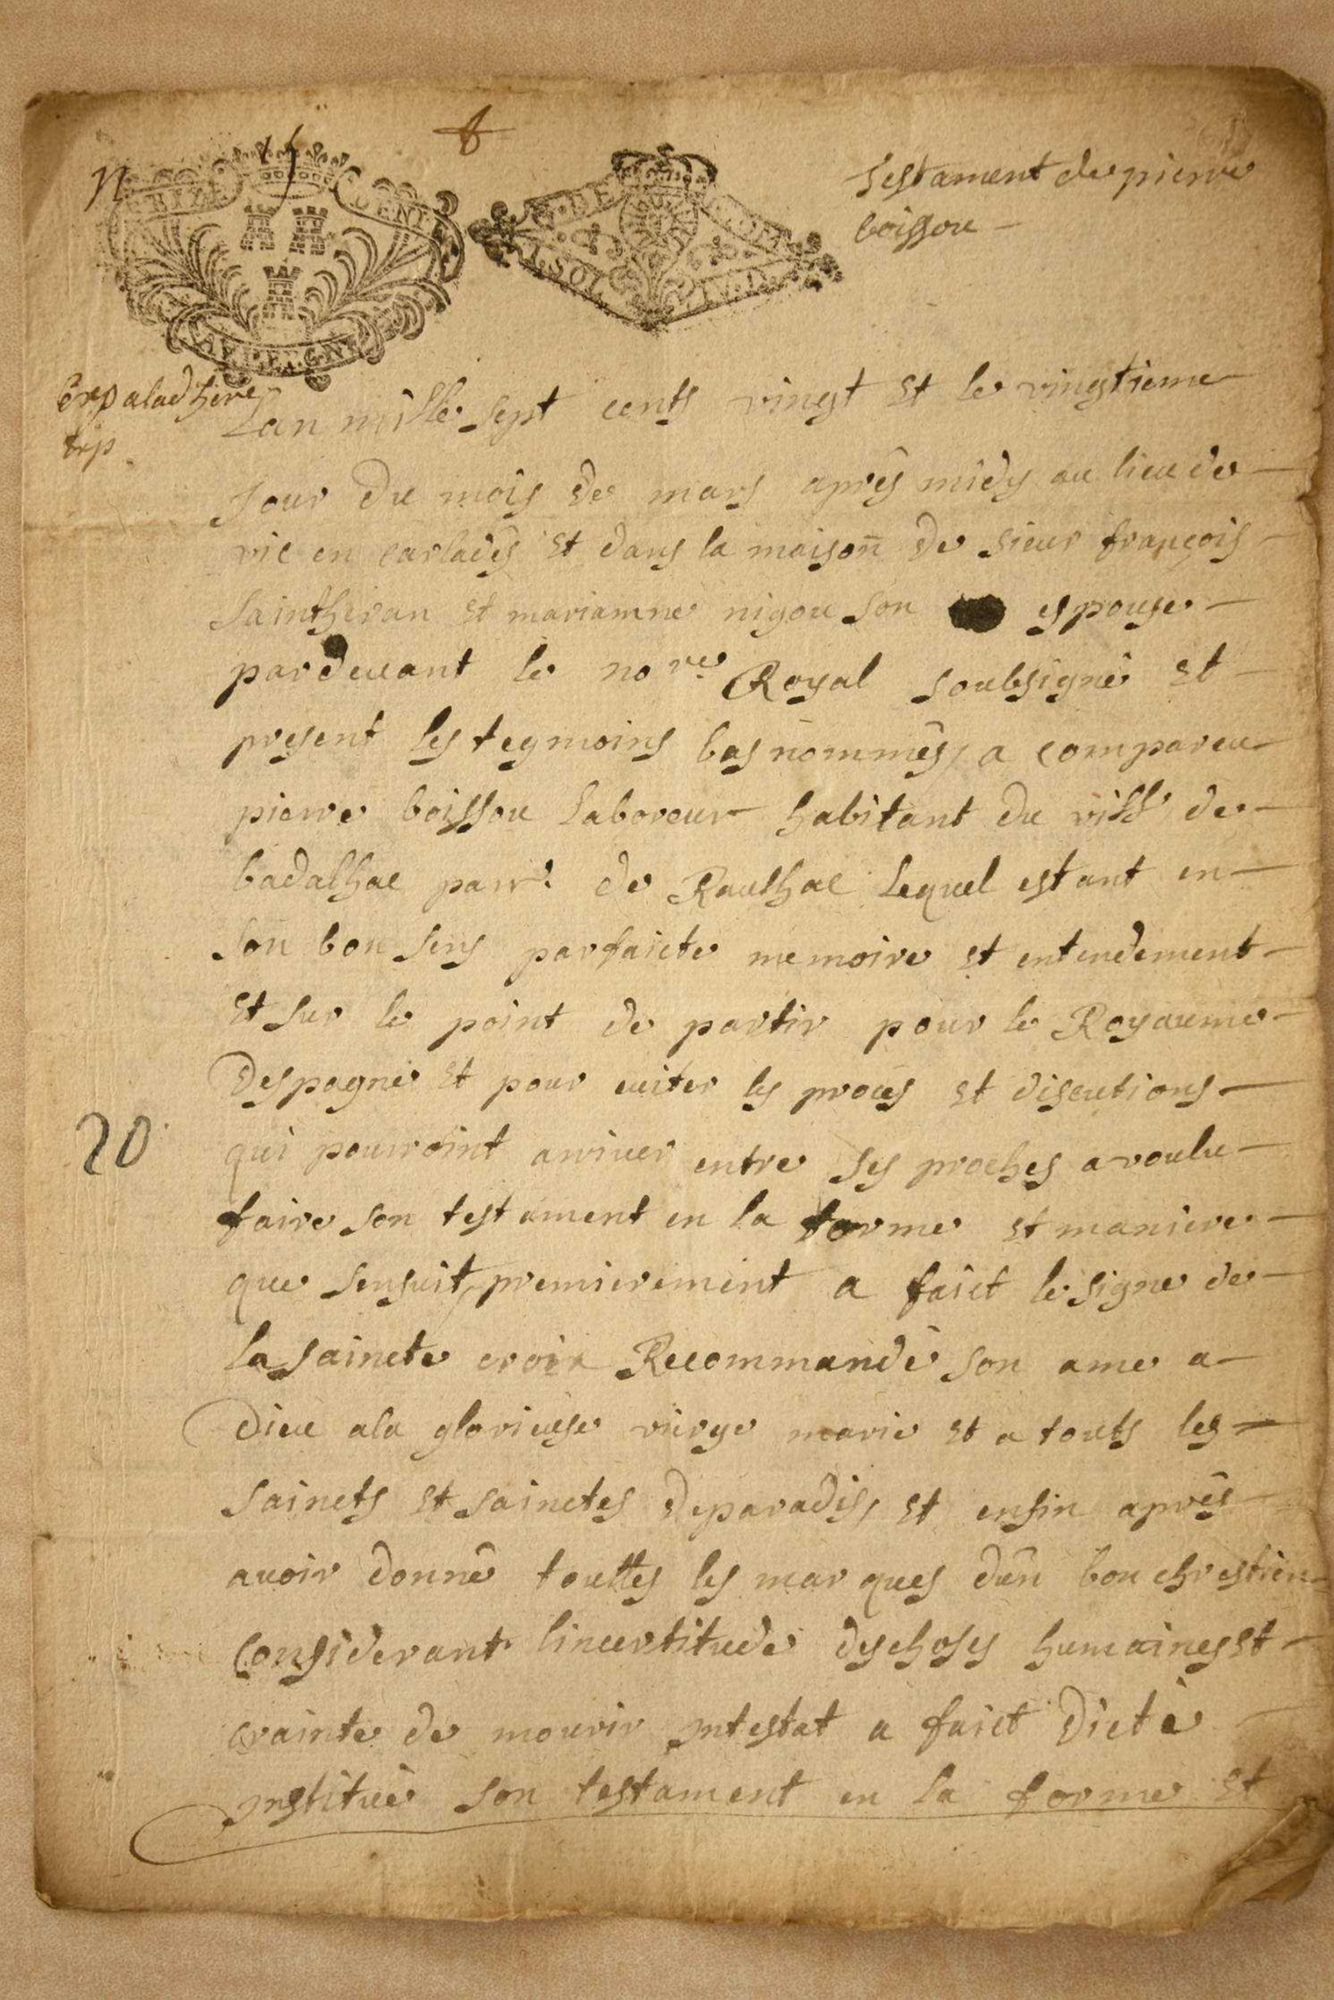 testament de pierre
boissou
Exp a la dhere
exp
Lan mille sept cents vingt et le vingtieme
Jour du mois de mars après midy au lieu de
vic en carladès et dans la maison de sieur françois
saintheran et mariamne nigou son espouse
pardeuant le no.re Royal soubsigné et
present les tesmoins bas nommés, a compareu
pierre boissou Laboreur habitant du vill de
badalhac parr. de Raulhac Lequel estant en
son bon sens parfaicte memoire et entendement
et sur le point de partir pour le Royaume
despagne et pour euiter les proces et discutions
qui pourroint arriuer entre ses proches a voulu
faire son testament en la forme et maniere
que sensuit, premierement a faict le signe de
la saincte croix Recommandé son ame a
dieu a la glorieuse vierge marie et a touts les
saincts et sainctes de paradis, et enfin après
auoir donné touttes les marques dun bon chrestien
considerant lincertitude des choses humaines et
crainte de mourir intestat a faict dicté
institué son testament en la forme et
20